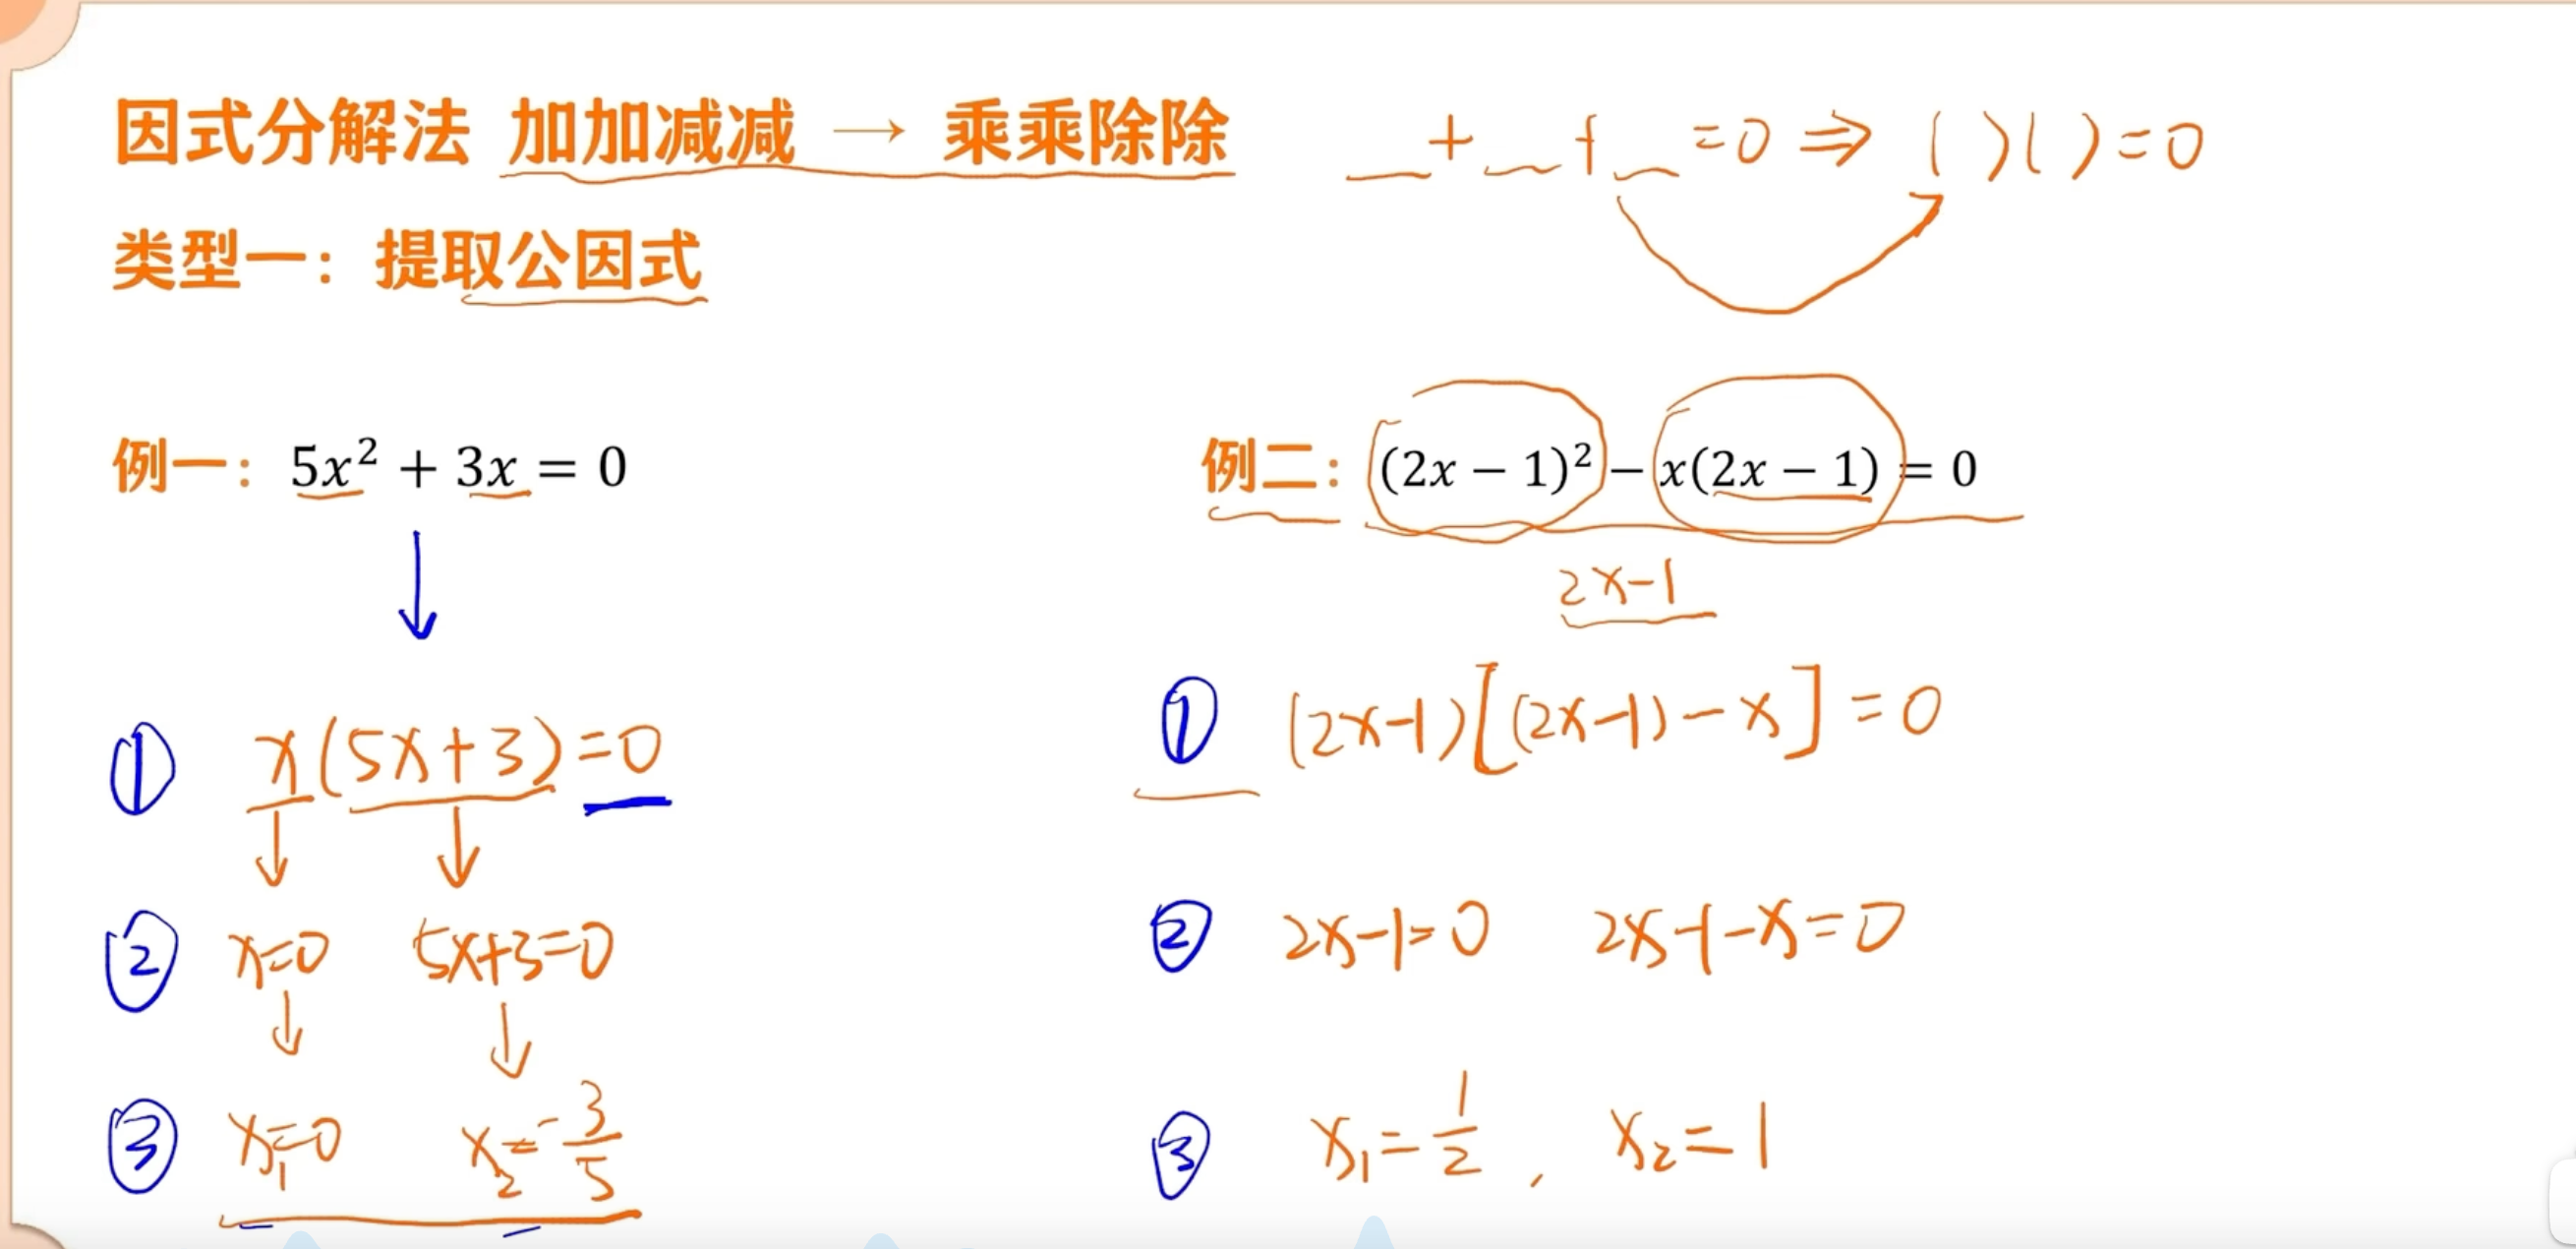 因式分解法 加加减减 → 乘乘除除 __+__+__=0 ⇒ ( )( )=0
类型一：提取公因式
例一：5x² + 3x = 0
① x(5x+3)=0
② x=0 5x+3=0
③ x₁=0 x₂=-3/5
例二：(2x − 1)² − x(2x − 1) = 0
2x-1
① (2x-1)[(2x-1)-x]=0
② 2x-1=0 2x-1-x=0
③ x₁=1/2, x₂=1